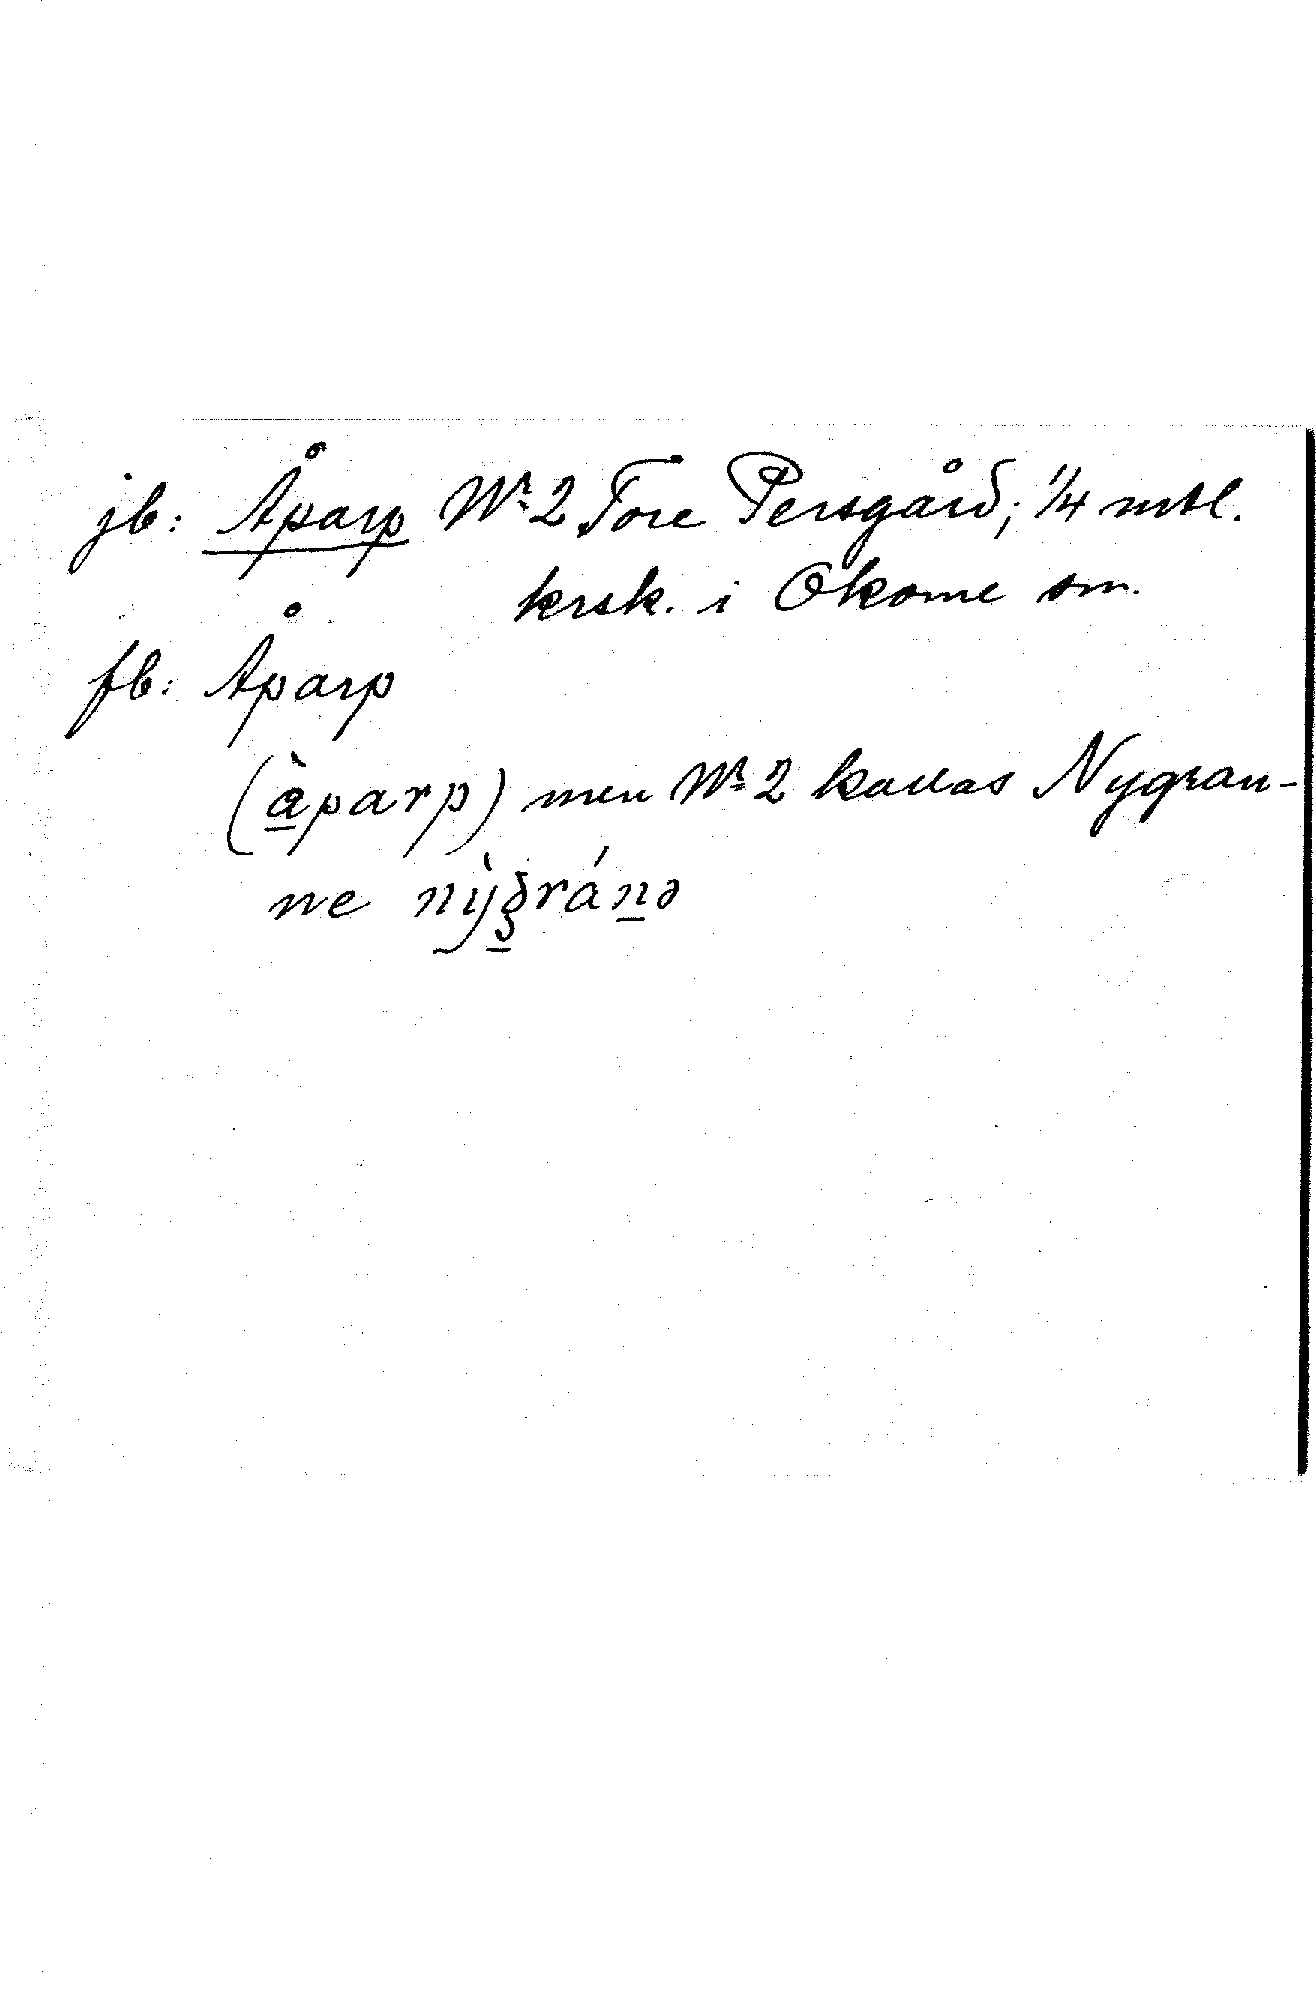 jb: Åparp Nr 2 Tore Persgård; 1/4 mtl.
krsk. i Okome sn.
fb: Åparp
(à̲parp) men Nr 2 kallas Nygran-
ne nỳg̲rán̲ə